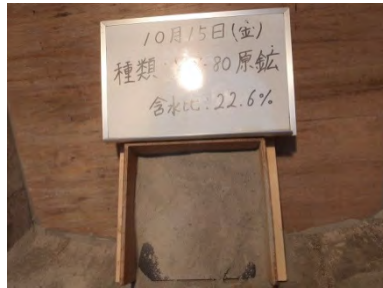 10月15日(金)
種類: -80原鉱
含水比:22.6%